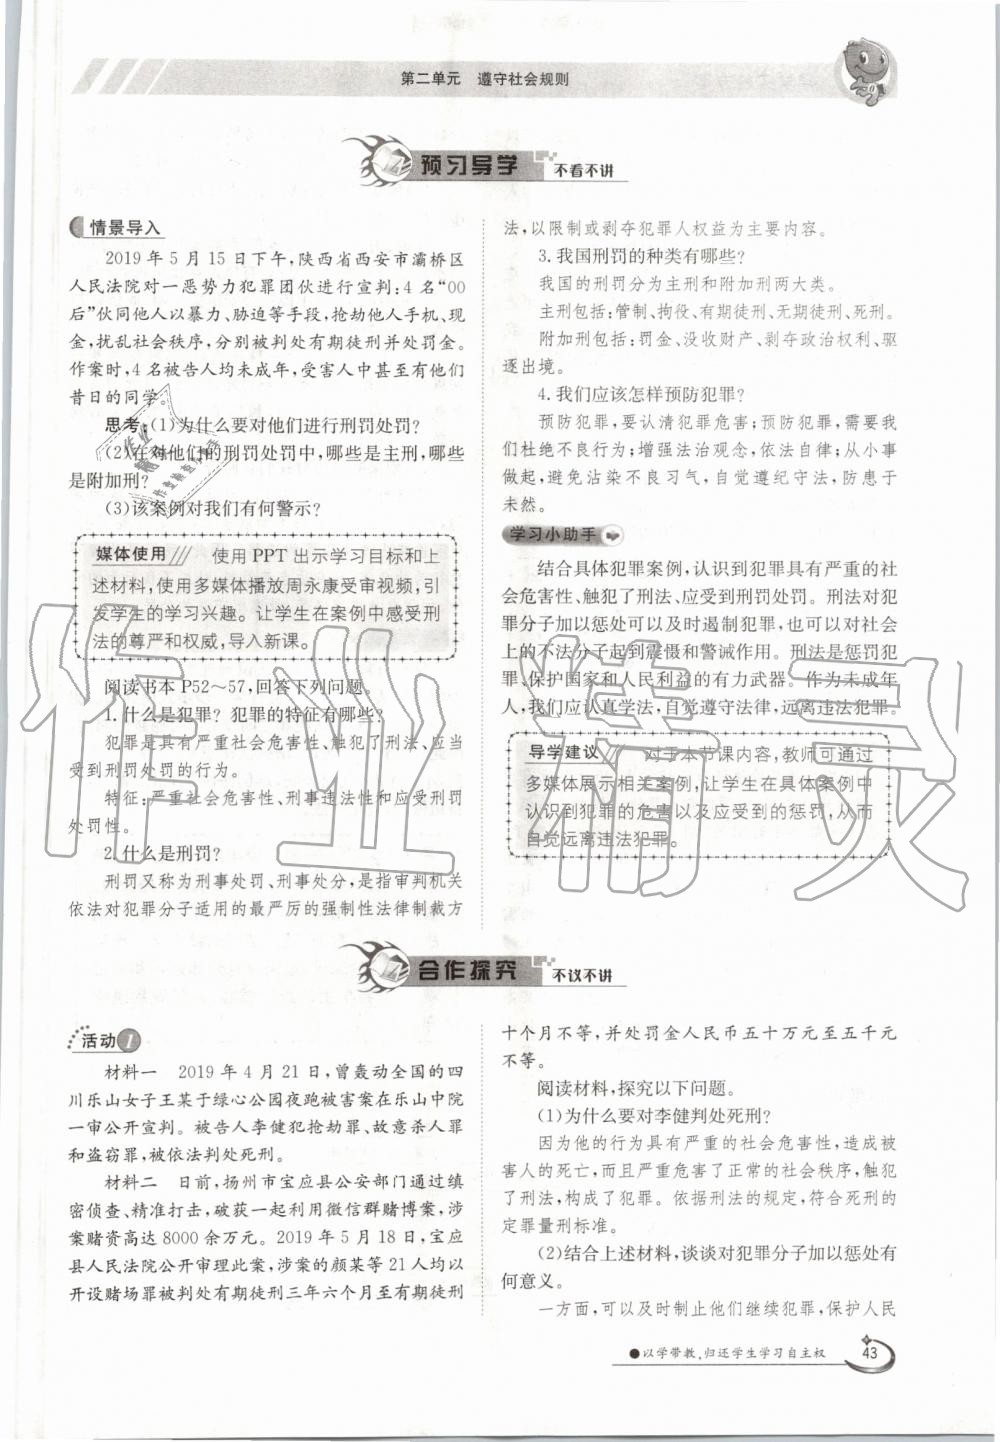 第二单元 遵守社会规则
预习导学 不看不讲
情景导入
2019年5月15日下午,陕西省西安市灞桥区
人民法院对一恶势力犯罪团伙进行宣判:4名“00
后”伙同他人以暴力、胁迫等手段,抢劫他人手机、现
金,扰乱社会秩序,分别被判处有期徒刑并处罚金。
作案时,4名被告人均未成年,受害人中甚至有他们
昔日的同学。
思考:(1)为什么要对他们进行刑罚处罚?
(2)在对他们的刑罚处罚中,哪些是主刑,哪些
是附加刑?
(3)该案例对我们有何警示?
媒体使用 使用PPT出示学习目标和上
述材料,使用多媒体播放周永康受审视频,引
发学生的学习兴趣。让学生在案例中感受刑
法的尊严和权威,导入新课。
阅读书本P52～57,回答下列问题。
1.什么是犯罪?犯罪的特征有哪些?
犯罪是具有严重社会危害性、触犯了刑法、应当
受到刑罚处罚的行为。
特征:严重社会危害性、刑事违法性和应受刑罚
处罚性。
2.什么是刑罚?
刑罚又称为刑事处罚、刑事处分,是指审判机关
依法对犯罪分子适用的最严厉的强制性法律制裁方
法,以限制或剥夺犯罪人权益为主要内容。
3.我国刑罚的种类有哪些?
我国的刑罚分为主刑和附加刑两大类。
主刑包括:管制、拘役、有期徒刑、无期徒刑、死刑。
附加刑包括:罚金、没收财产、剥夺政治权利、驱
逐出境。
4.我们应该怎样预防犯罪?
预防犯罪,要认清犯罪危害;预防犯罪,要求我
们杜绝不良行为;增强法治观念,依法自律;从小事
做起,避免沾染不良习气,自觉遵纪守法,防患于
未然。
学习小助手
结合具体犯罪案例,认识到犯罪具有严重的社
会危害性、触犯了刑法、应受到刑罚处罚。刑法对犯
罪分子加以惩处可以及时遏制犯罪,也可以对社会
上的不法分子起到震慑和警诫作用。刑法是惩罚犯
罪、保护国家和人民利益的有力武器。作为未成年
人,我们应认真学法,自觉遵守法律,远离违法犯罪。
导学建议 对于本节课内容,教师可通过
多媒体展示相关案例,让学生在具体案例中
认识到犯罪的危害以及应受到的惩罚,从而
自觉远离违法犯罪。
合作探究 不议不讲
活动1
材料一 2019年4月21日,曾轰动全国的四
川乐山女子王某于绿心公园夜跑被害案在乐山中院
一审公开宣判。被告人李健犯抢劫罪、故意杀人罪
和盗窃罪,被依法判处死刑。
材料二 日前,扬州市宝应县公安部门通过缜
密侦查、精准打击,破获一起利用微信群赌博案,涉
案赌资高达8000余万元。2019年5月18日,宝应
县人民法院公开审理此案,涉案的颜某等21人均以
开设赌场罪被判处有期徒刑三年六个月至有期徒刑
十个月不等,并处罚金人民币五十万元至五千元
不等。
阅读材料,探究以下问题。
(1)为什么要对李健判处死刑?
因为他的行为具有严重的社会危害性,造成被
害人的死亡,而且严重危害了正常的社会秩序,触犯
了刑法,构成了犯罪。依据刑法的规定,符合死刑的
定罪量刑标准。
(2)结合上述材料,谈谈对犯罪分子加以惩处有
何意义。
一方面,可以及时制止他们继续犯罪,保护人民
●以学带教,归还学生学习自主权 43
作业精灵